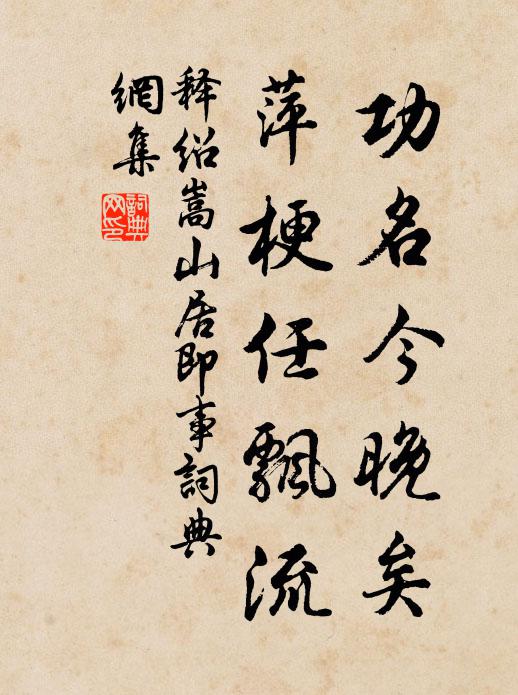 功名今晚矣
萍梗任飄流
释绍嵩山居即事詞典
網集
詞典
网印